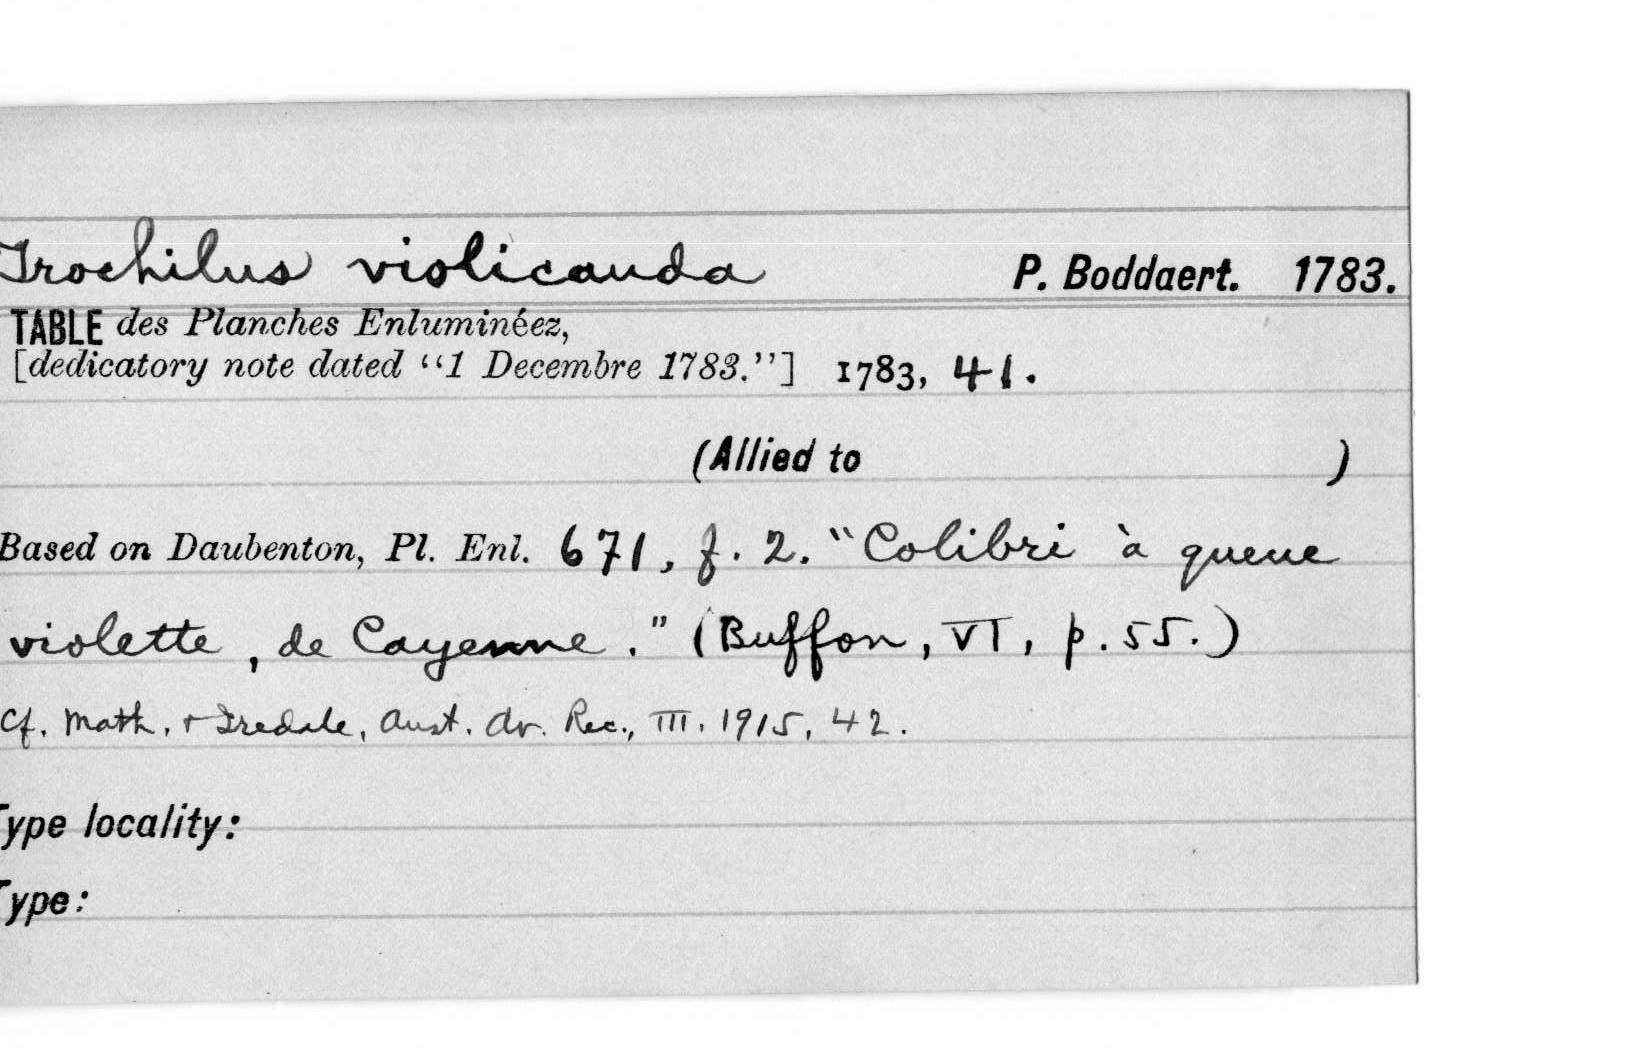 Trochilus violicauda P. Boddaert. 1783.
TABLE des Planches Enluminéez,
[dedicatory note dated “1 Decembre 1783.”] 1783, 41.
(Allied to )
Based on Daubenton, Pl. Enl. 671, f. 2. "Colibri à queue
violette, de Cayenne." (Buffon, VI, p. 55.)
Cf. Math. + Iredale, Aust. Av. Rec., III. 1915, 42.
Type locality:
Type: